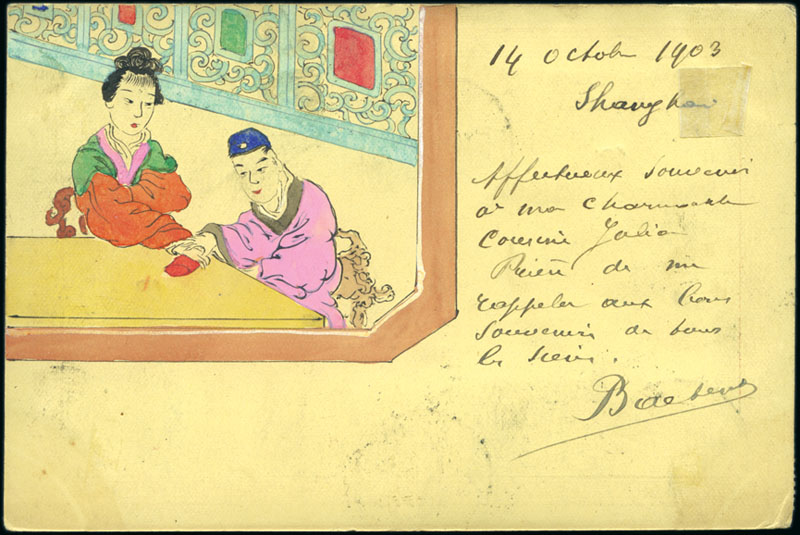 14 Octobre 1903
Shanghai
Affectueux souvenir
à ma charmante
Cousine Julia
Prière de me
rappeler aux bons
souvenirs de tous
les siens.